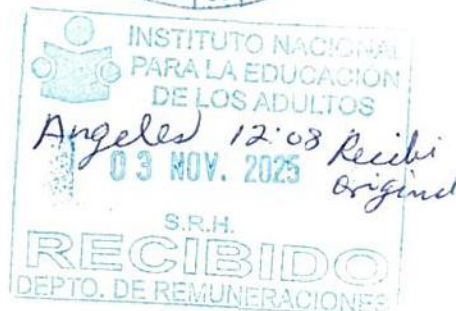 INSTITUTO NACIONAL
PARA LA EDUCACIÓN
DE LOS ADULTOS
Angeles 12:08 Recibi
03 NOV. 2025 original
S.R.H.
RECIBIDO
DEPTO. DE REMUNERACIONES